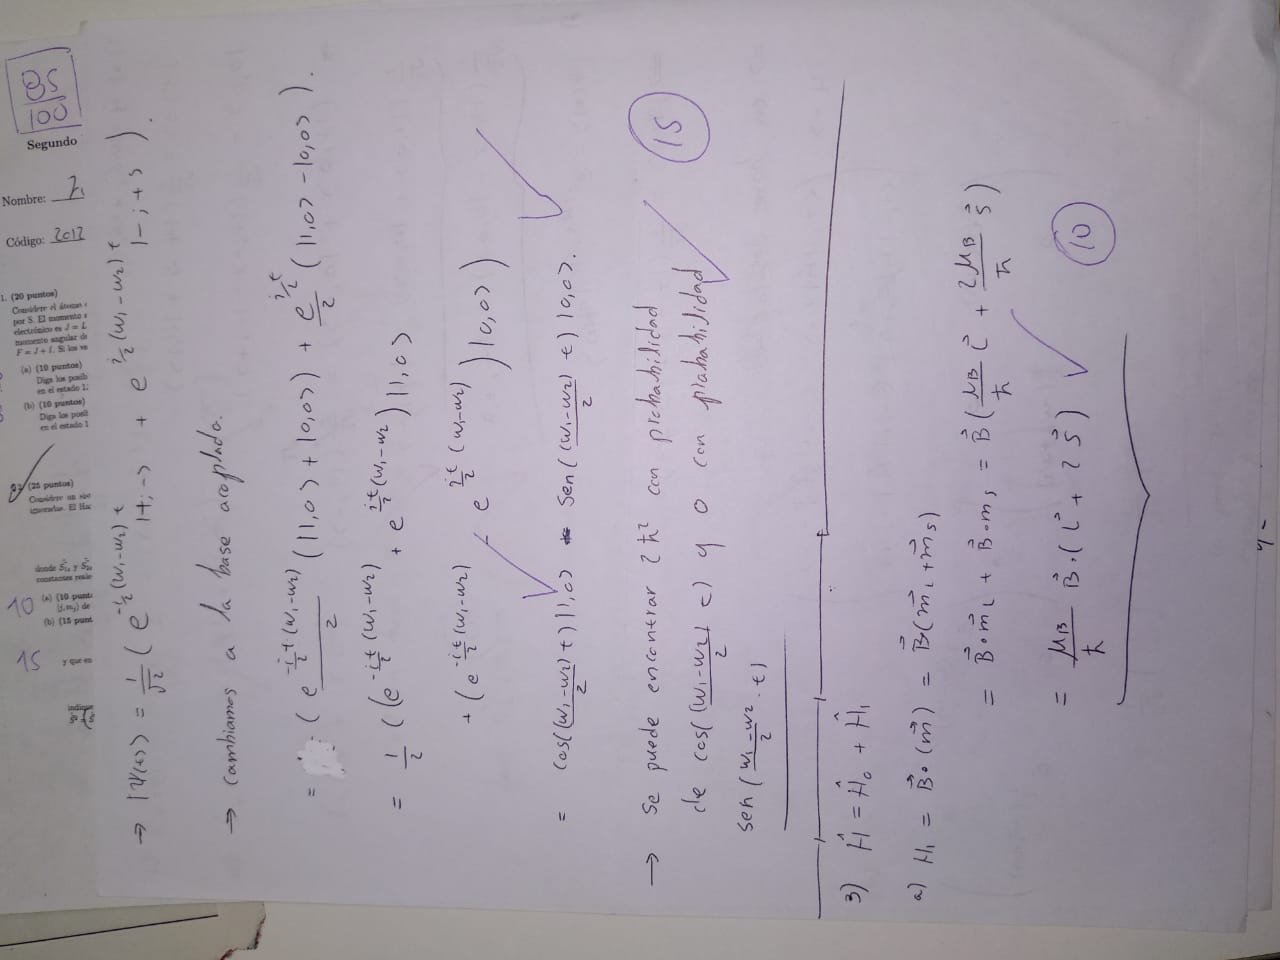 85
100
Segundo
Nombre:
Código: 2012
1. (20 puntos)
Considere el átomo
por S. El momento
electrónico es J = L
momento angular
F = J + I. Si los
(a) (10 puntos)
Diga los posib
en el estado 1
(b) (10 puntos)
Diga los posib
en el estado 1
(25 puntos)
Considere un
ignoradas. El
donde S₁ₓ y S₂
constantes reale
10 (a) (10 punt
(b) (15 punt
15 y que en
→ |Ψ(t)> = 1/√2 ( e^{-i/2 (w₁-w₂) t} |+;-> + e^{i/2 (w₁-w₂) t} |-;+> ).
→ Cambiamos a la base acoplada.
= ( e^{-i/2 t (w₁-w₂)}/2 (|1,0> + |0,0>) + e^{i t/2}/2 (|1,0> - |0,0>).
= 1/2 ( (e^{-it/2 (w₁-w₂)} + e^{it/2 (w₁-w₂)}) |1,0>
+ (e^{-it/2 (w₁-w₂)} - e^{it/2 (w₁-w₂)}) |0,0> )
= cos((w₁-w₂)/2 t) |1,0> Sen((w₁-w₂)/2 t) |0,0>.
→ Se puede encontrar 2ħ² con probabilidad
de cos((w₁-w₂)/2 t) y 0 con plababilidad
sen (w₁-w₂/2 · t)
15
3) Ĥ = Ĥ₀ + Ĥ₁
a) H₁ = B⃗·(m⃗) = B⃗(m⃗_L + m⃗_s)
= B⃗·m⃗_L + B⃗·m_s = B⃗(μ_B/ħ L⃗ + 2μ_B/ħ S⃗)
= μ_B/ħ B⃗·(L⃗ + 2S⃗)
10